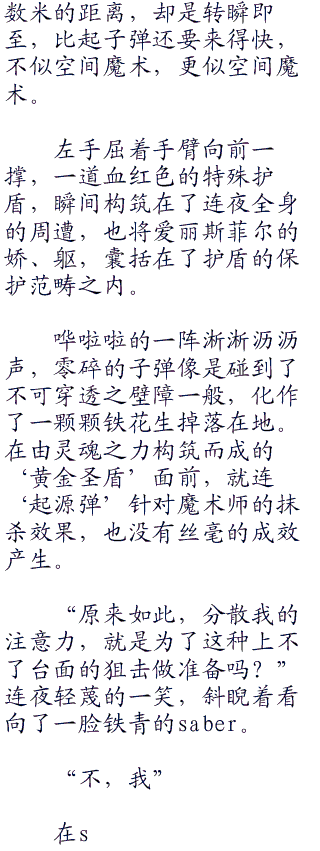 数米的距离，却是转瞬即
至，比起子弹还要来得快，
不似空间魔术，更似空间魔
术。
左手屈着手臂向前一
撑，一道血红色的特殊护
盾，瞬间构筑在了连夜全身
的周遭，也将爱丽斯菲尔的
娇、躯，囊括在了护盾的保
护范畴之内。
哗啦啦的一阵淅淅沥沥
声，零碎的子弹像是碰到了
不可穿透之壁障一般，化作
了一颗颗铁花生掉落在地。
在由灵魂之力构筑而成的
‘黄金圣盾’面前，就连
‘起源弹’针对魔术师的抹
杀效果，也没有丝毫的成效
产生。
“原来如此，分散我的
注意力，就是为了这种上不
了台面的狙击做准备吗？”
连夜轻蔑的一笑，斜睨着看
向了一脸铁青的saber。
“不，我”
在s